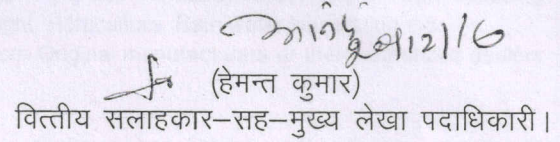 (हेमन्त कुमार)
वित्तीय सलाहकार–सह–मुख्य लेखा पदाधिकारी।